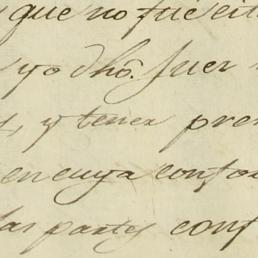 y que no fué cit
yo dho. Juez
y tener pre
en cuya confor
las partes conf